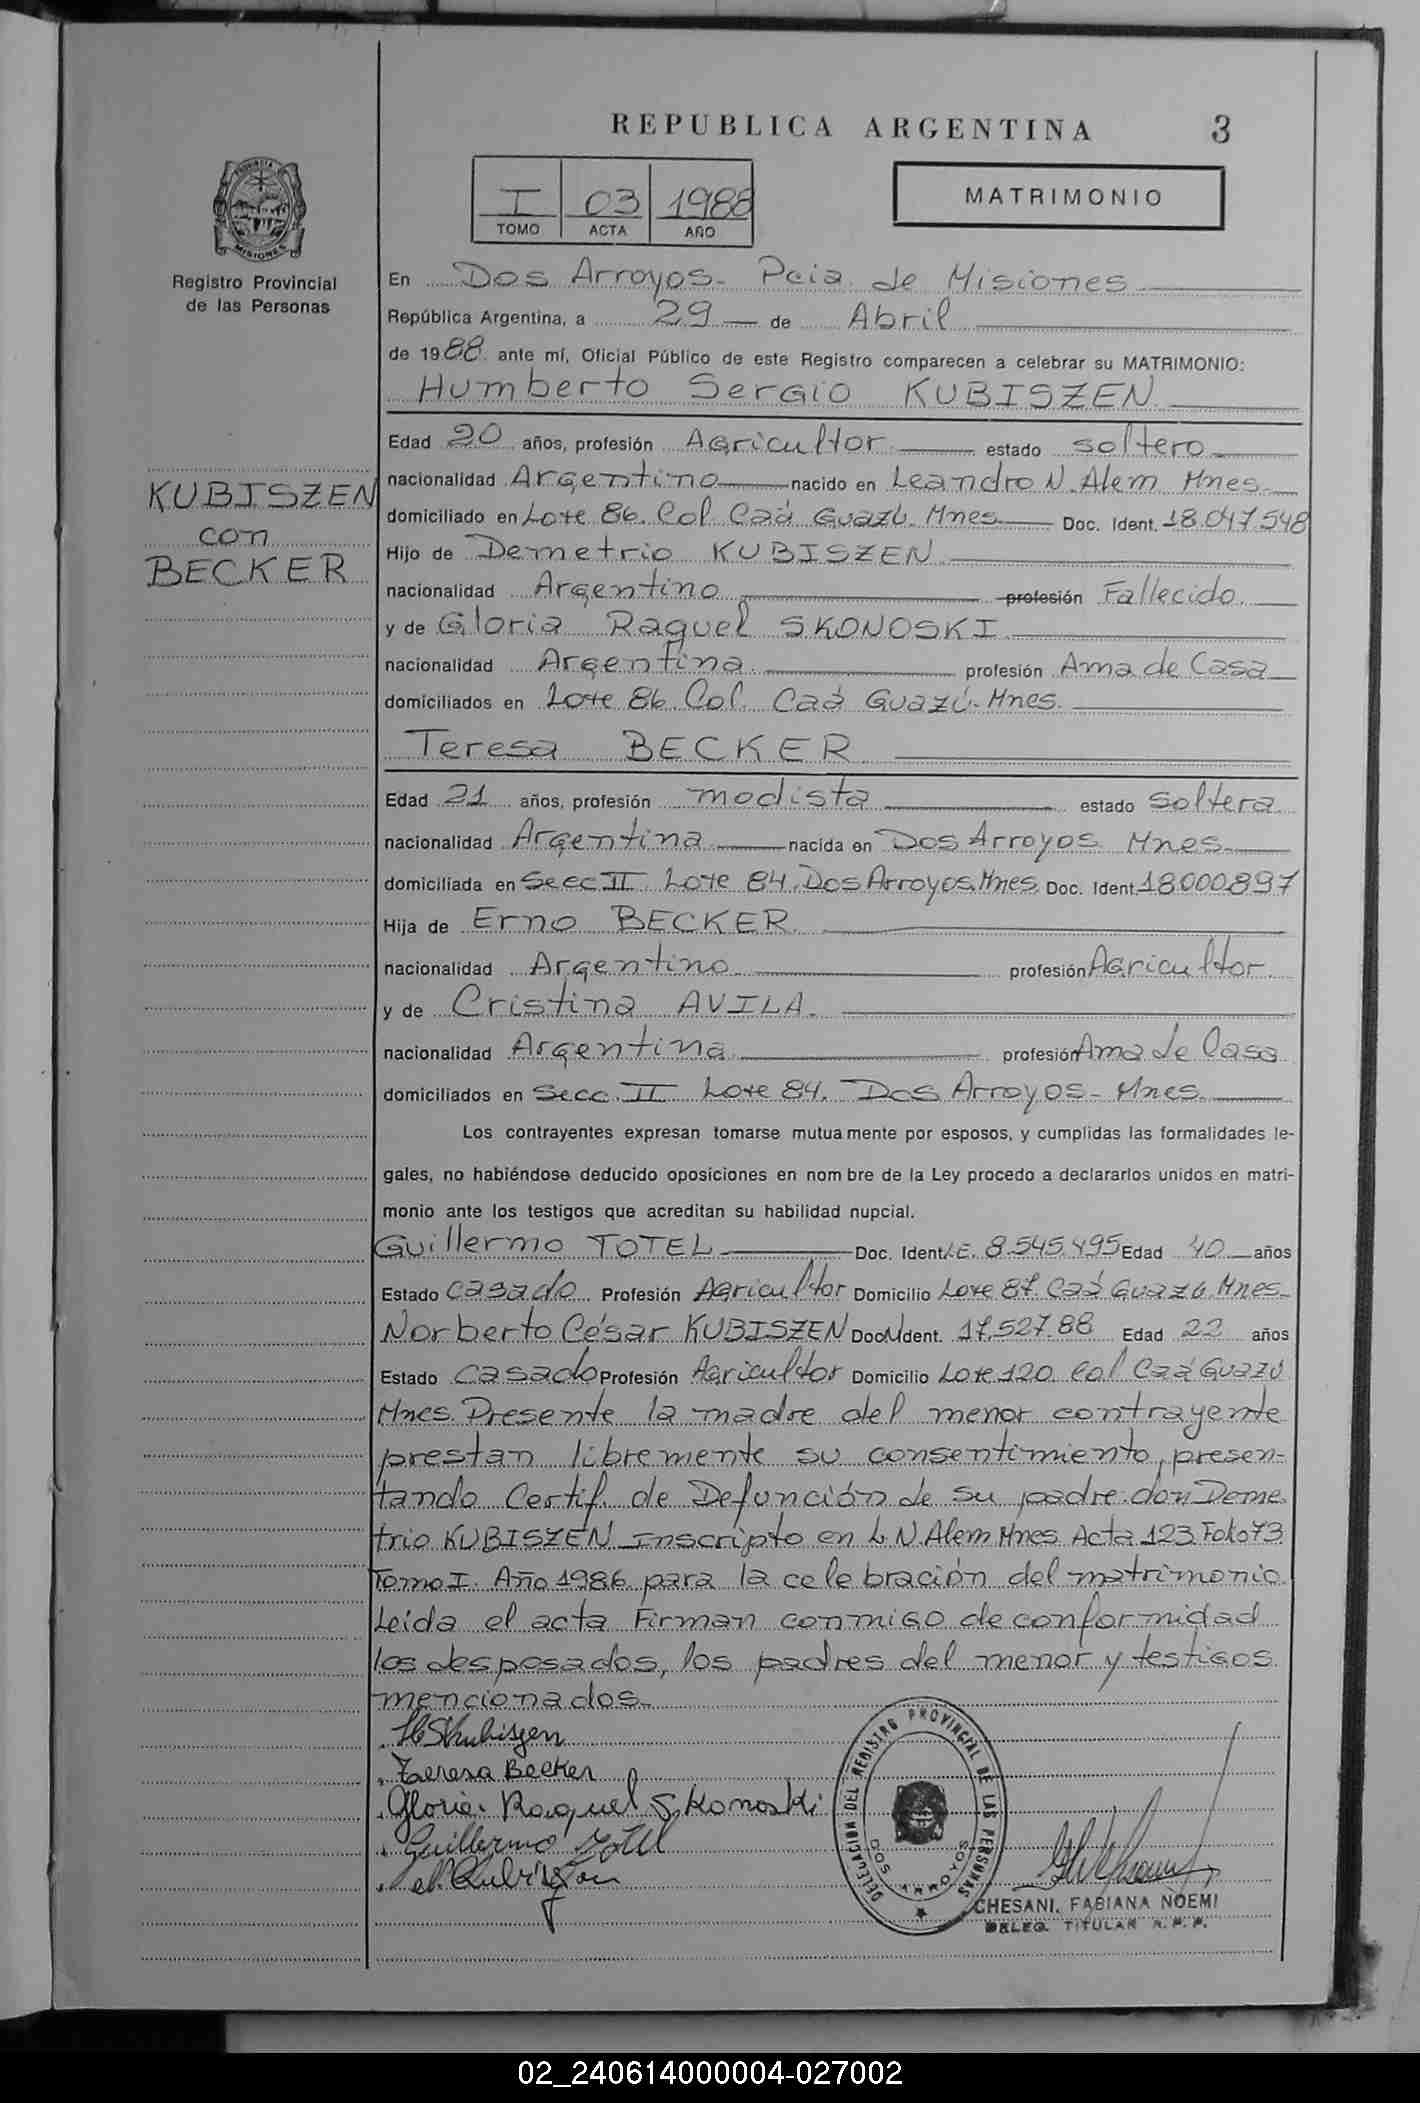 REPUBLICA ARGENTINA 3
I 03 1988
TOMO ACTA AÑO
MATRIMONIO
PROVINCIA
MISIONES
Registro Provincial
de las Personas
KUBISZEN
con
BECKER
En Dos Arroyos - Pcia de Misiones
República Argentina, a 29 de Abril
de 1988 ante mí, Oficial Público de este Registro comparecen a celebrar su MATRIMONIO:
Humberto Sergio KUBISZEN
Edad 20 años, profesión Agricultor estado soltero
nacionalidad Argentino nacido en Leandro N. Alem Mnes
domiciliado en Lote 86. Col Caá Guazú. Mnes Doc. Ident. 18.047.548
Hijo de Demetrio KUBISZEN
nacionalidad Argentino profesión Fallecido
y de Gloria Raquel SKONOSKI
nacionalidad Argentina profesión Ama de Casa
domiciliados en Lote 86. Col. Caá Guazú - Mnes.
Teresa BECKER
Edad 21 años, profesión modista estado soltera
nacionalidad Argentina nacida en Dos Arroyos Mnes
domiciliada en Secc II. Lote 84. Dos Arroyos. Mnes. Doc. Ident. 18.000.897
Hija de Erno BECKER
nacionalidad Argentino profesión Agricultor
y de Cristina AVILA.
nacionalidad Argentina profesión Ama de Casa
domiciliados en Secc. II Lote 84. Dos Arroyos - Mnes.
Los contrayentes expresan tomarse mutuamente por esposos, y cumplidas las formalidades le-
gales, no habiéndose deducido oposiciones en nombre de la Ley procedo a declararlos unidos en matri-
monio ante los testigos que acreditan su habilidad nupcial.
Guillermo TOTEL Doc. Ident. L.E. 8.545.495 Edad 40 años
Estado casado Profesión Agricultor Domicilio Lote 87. Caá Guazú. Mnes
Norberto César KUBISZEN Doc. Ident. 17.527.88 Edad 22 años
Estado casado Profesión Agricultor Domicilio Lote 120 Col Caá Guazú
Mnes. Presente la madre del menor contrayente
prestan libremente su consentimiento, presen-
tando Certif. de Defunción de su padre don Deme
trio KUBISZEN Inscripto en L. N. Alem Mnes Acta 123 Folio 73
Tomo I. Año 1986 para la celebración del matrimonio.
Leída el acta Firman conmigo de conformidad
los desposados, los padres del menor y testigos
mencionados.
HSKubiszen
Teresa Becker
Gloria Raquel Skonoski
Guillermo Totel
DELEGACION DEL REGISTRO PROVINCIAL DE LAS PERSONAS
DOS ARROYOS
CHESANI, FABIANA NOEMI
DELEG. TITULAR R. P. P.
02_240614000004-027002